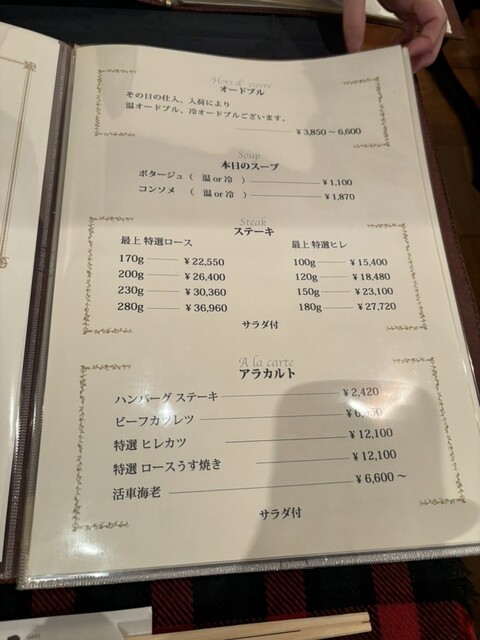 Hors d' œuvre
オードブル
その日の仕入、入荷により
温オードブル、冷オードブルございます。
¥3,850～6,600
Soup
本日のスープ
ポタージュ（ 温 or 冷 ） ¥1,100
コンソメ （ 温 or 冷 ） ¥1,870
Steak
ステーキ
最上 特選ロース
170g ¥22,550
200g ¥26,400
230g ¥30,360
280g ¥36,960
最上 特選ヒレ
100g ¥15,400
120g ¥18,480
150g ¥23,100
180g ¥27,720
サラダ付
A la carte
アラカルト
ハンバーグ ステーキ ¥2,420
ビーフカツレツ
特選 ヒレカツ ¥12,100
特選 ロースうす焼き ¥12,100
活車海老 ¥6,600～
サラダ付